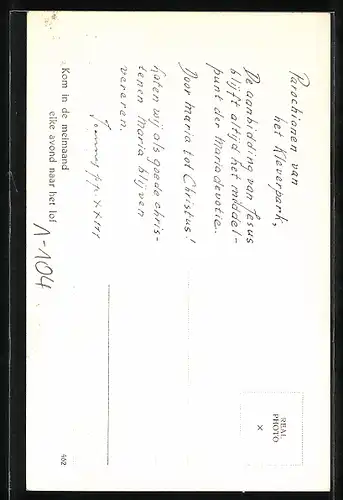 Parochianen van
het Kleverpark,
De aanbidding van Jesus
blijft altijd het middel-
punt der Mariadevotie.
Door Maria tot Christus!
Laten wij als goede chris-
tenen Maria blijven
vereren.
Joannes p.p. XXIII
Kom in de meimaand
elke avond naar het lof
1-104
REAL
PHOTO
462